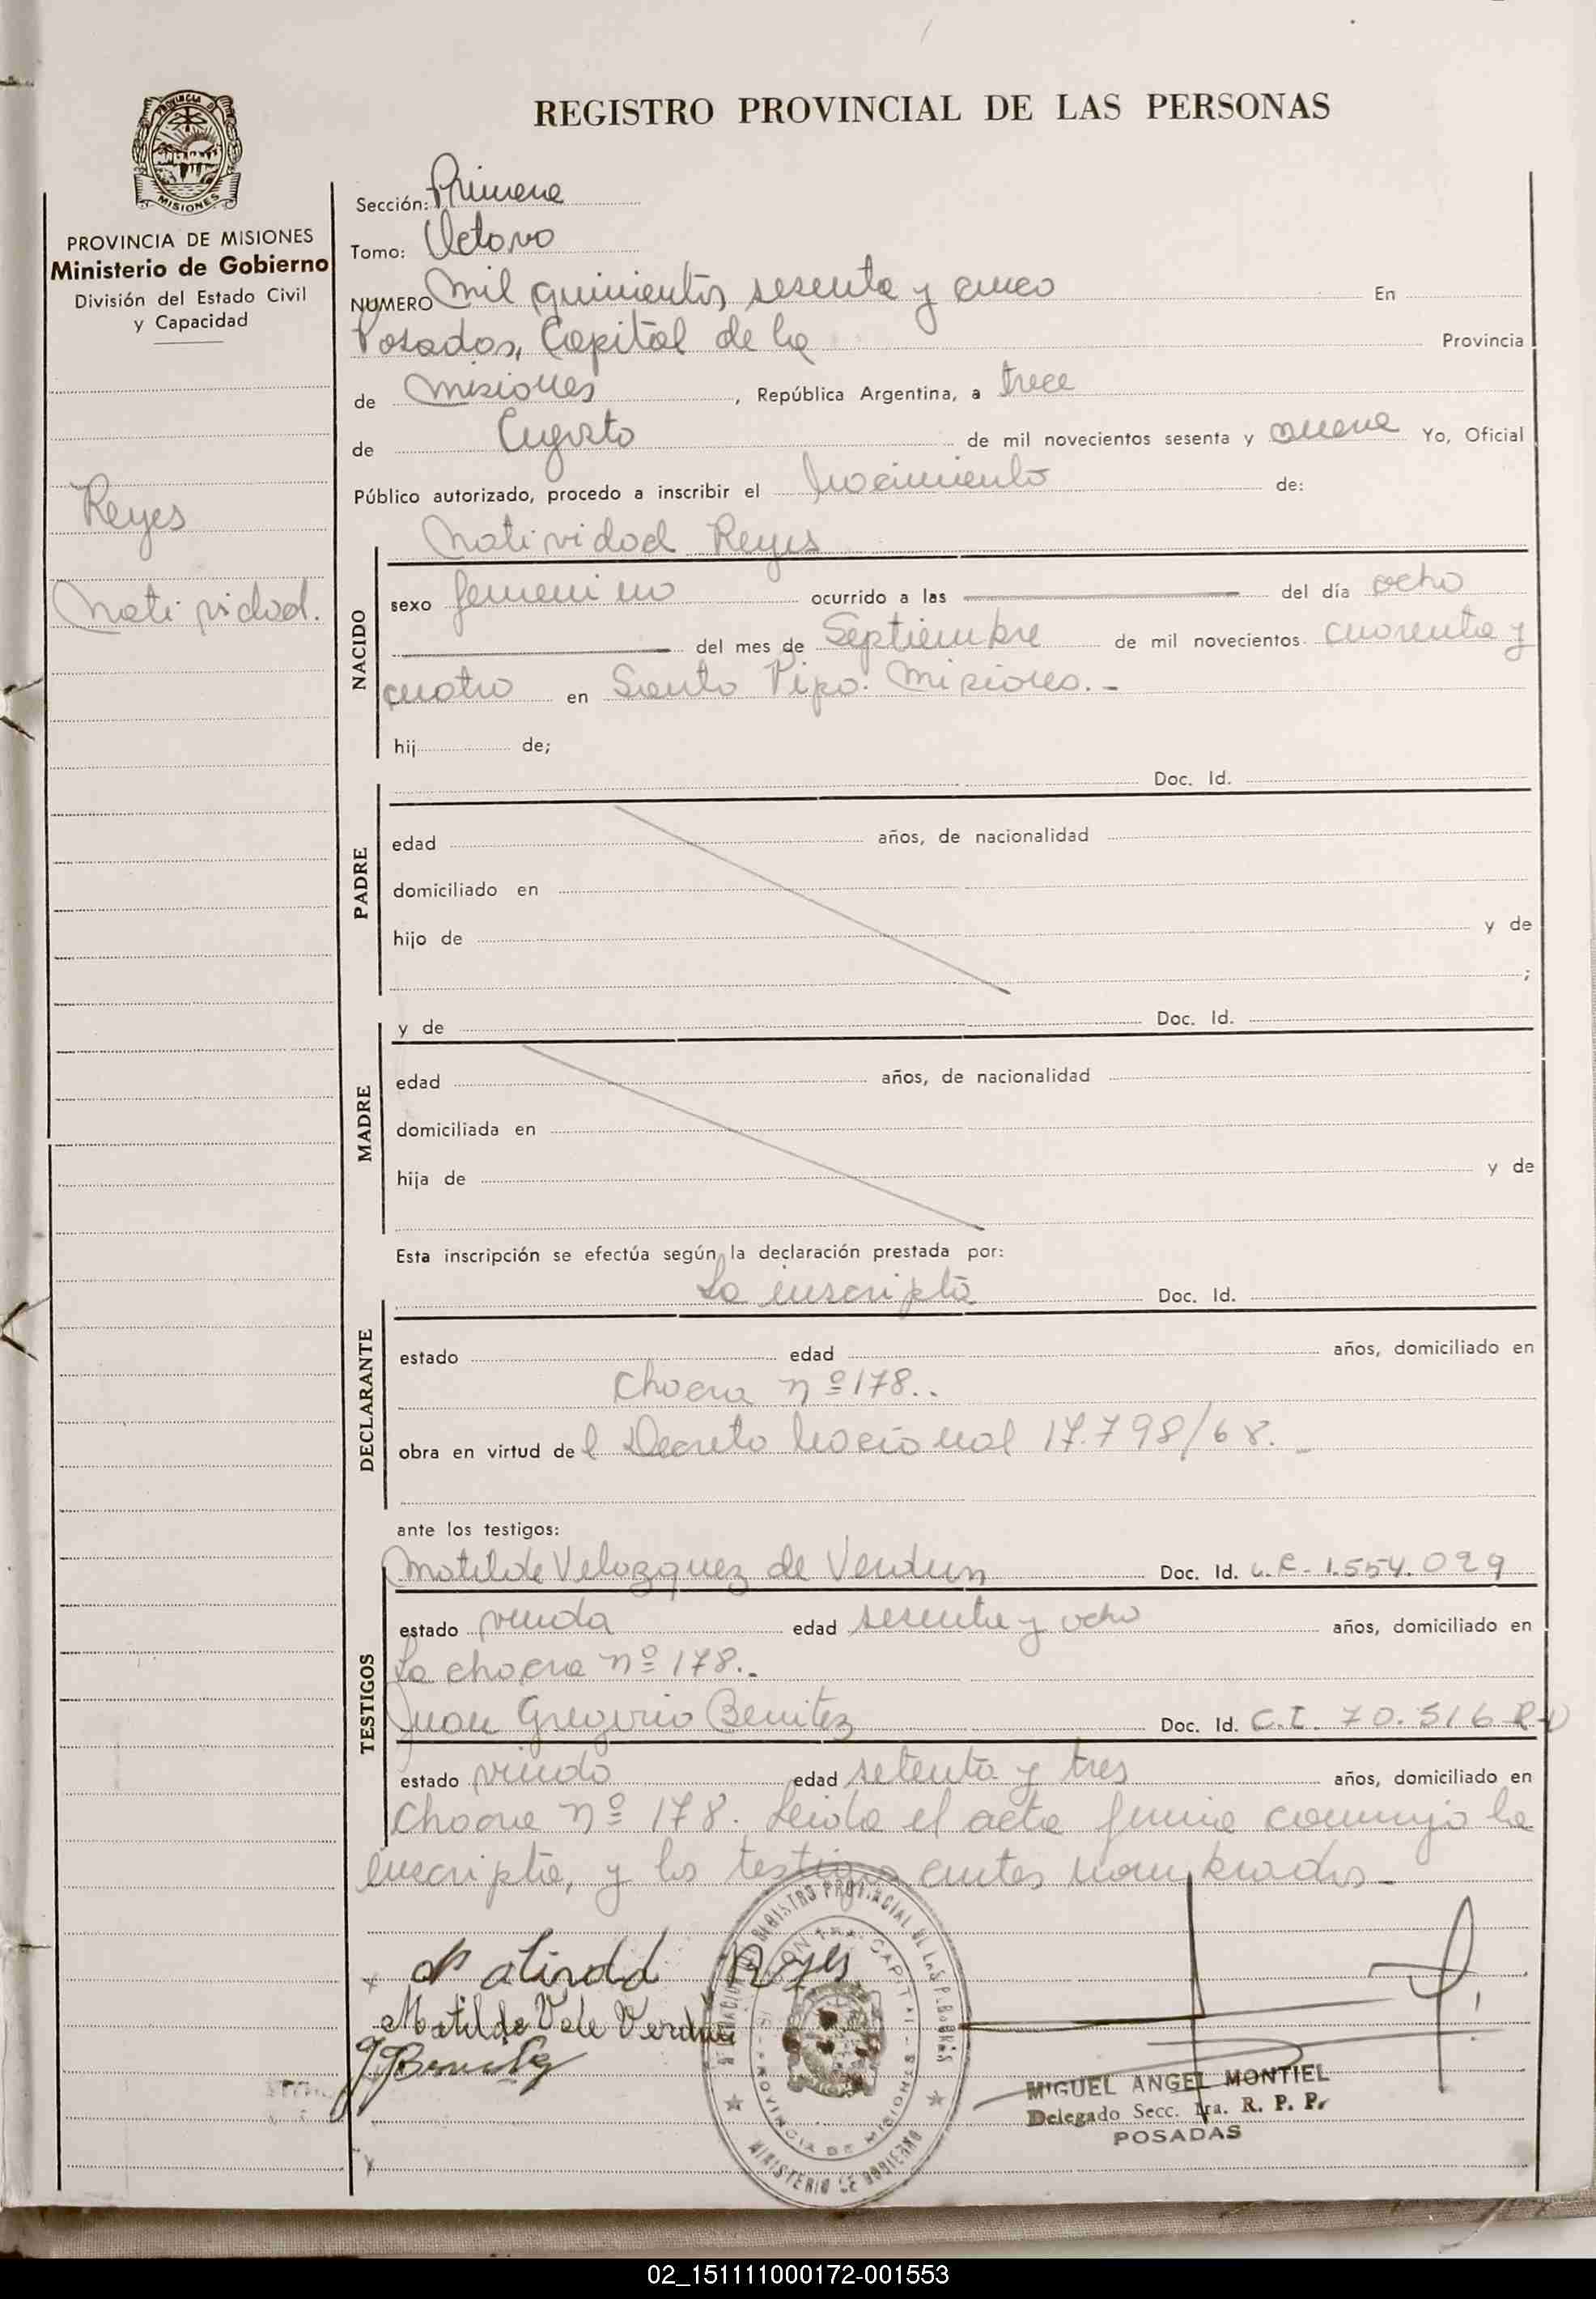 REGISTRO PROVINCIAL DE LAS PERSONAS
PROVINCIA DE MISIONES
PROVINCIA DE MISIONES
Ministerio de Gobierno
División del Estado Civil
y Capacidad
Reyes
Natividad.
Sección: Primera
Tomo: Octavo
NUMERO Mil quinientos sesenta y cinco En
Posadas, Capital de la Provincia
de Misiones, República Argentina, a trece
de Agosto de mil novecientos sesenta y nueve Yo, Oficial
Público autorizado, procedo a inscribir el Nacimiento de:
Natividad Reyes
NACIDO
sexo femenino ocurrido a las del día ocho
del mes de Septiembre de mil novecientos cuarenta y
cuatro en Santo Pipo. Misiones.-
hij de;
PADRE
Doc. Id.
edad años, de nacionalidad
domiciliado en
hijo de y de
;
MADRE
y de Doc. Id.
edad años, de nacionalidad
domiciliada en
hija de y de
Esta inscripción se efectúa según la declaración prestada por:
DECLARANTE
La inscripta Doc. Id.
estado edad años, domiciliado en
Chacra nº 178..
obra en virtud de l Decreto Nacional 17.798/68.-
ante los testigos:
TESTIGOS
Matilde Velazquez de Verdun Doc. Id. L.C. 1.554.029
estado viuda edad sesenta y ocho años, domiciliado en
La chacra nº 178..
Juan Gregorio Benitez Doc. Id. C.I. 70.516
estado viudo edad setenta y tres años, domiciliado en
Chacra nº 178. Leida el acta firma conmigo la
inscripta, y los testigos antes nombrados.-
Natividd Reyes
Matilde V de Verdun
J G Benitez
REGISTRO PROVINCIAL DE LAS PERSONAS
CAPITAL
PROVINCIA DE MISIONES
MINISTERIO DE GOBIERNO
MIGUEL ANGEL MONTIEL
Delegado Secc. 1ra. R. P. P.
POSADAS
02_151111000172-001553